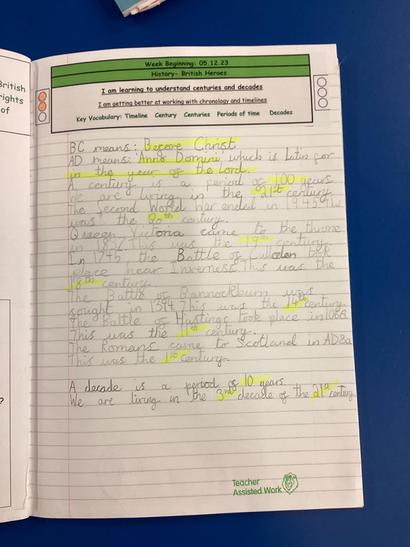 British
rights
of
?
Week Beginning: 05.12.23
History- British Heroes
I am learning to understand centuries and decades
I am getting better at working with chronology and timelines
Key Vocabulary: Timeline Century Centuries Periods of time Decades
BC means: Before Christ
AD means: Anno Domini which is Latin for
in the year of the Lord.
A century is a period of 100 years
We are living in the 21st century.
The Second World War ended in 1945. This
was the 20th century.
Queen Victoria came to the throne
in 1837. This was the 19th century.
In 1745 the Battle of Culloden took
place near Inverness. This was the
18th century.
The Battle of Bannockburn was
fought in 1314. This was the 14th century.
The Battle of Hastings took place in 1066.
This was the 11th century.
The Romans came to Scotland in AD82
This was the 1st century.
A decade is a period of 10 years.
We are living in the 3rd decade of the 21st century
Teacher
Assisted Work